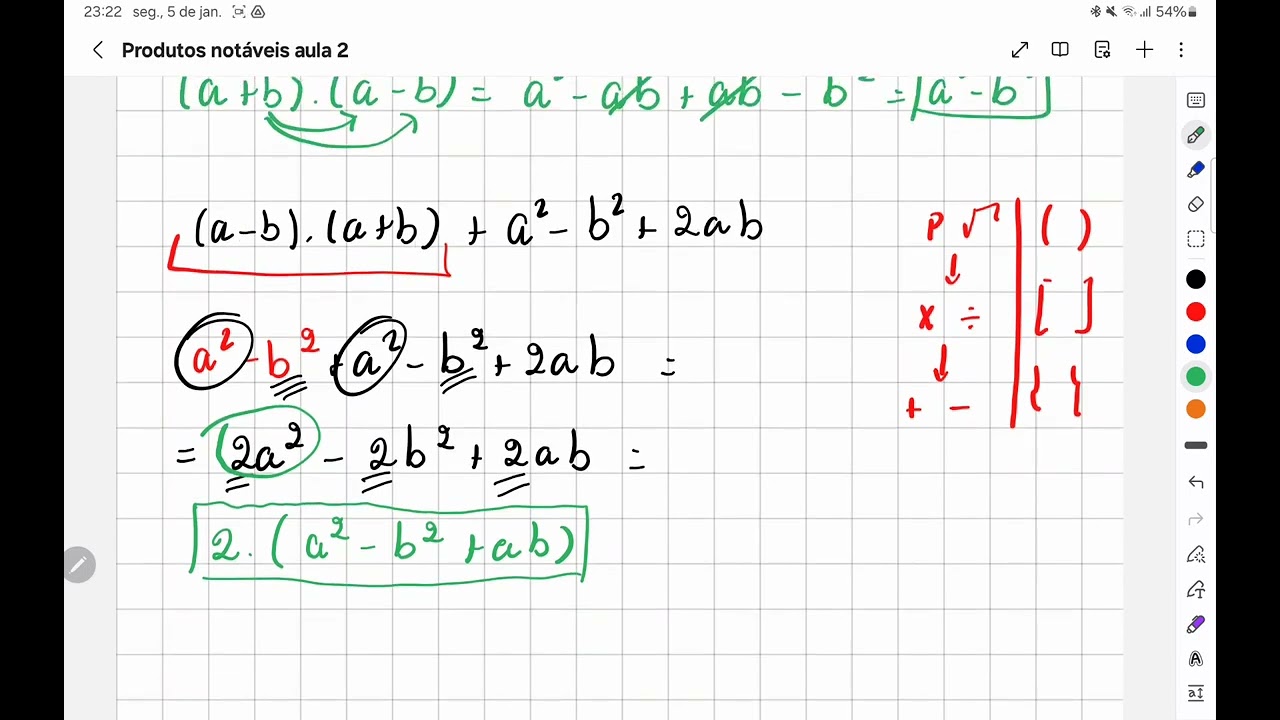 23:22 seg., 5 de jan. 54%
Produtos notáveis aula 2
(a+b).(a-b) = a² - ab + ab - b² = a² - b²
(a-b).(a+b) + a² - b² + 2ab
a² - b² + a² - b² + 2ab =
= 2a² - 2b² + 2ab =
2.(a² - b² + ab)
P √ ( )
↓
x ÷ [ ]
↓
+ - { }